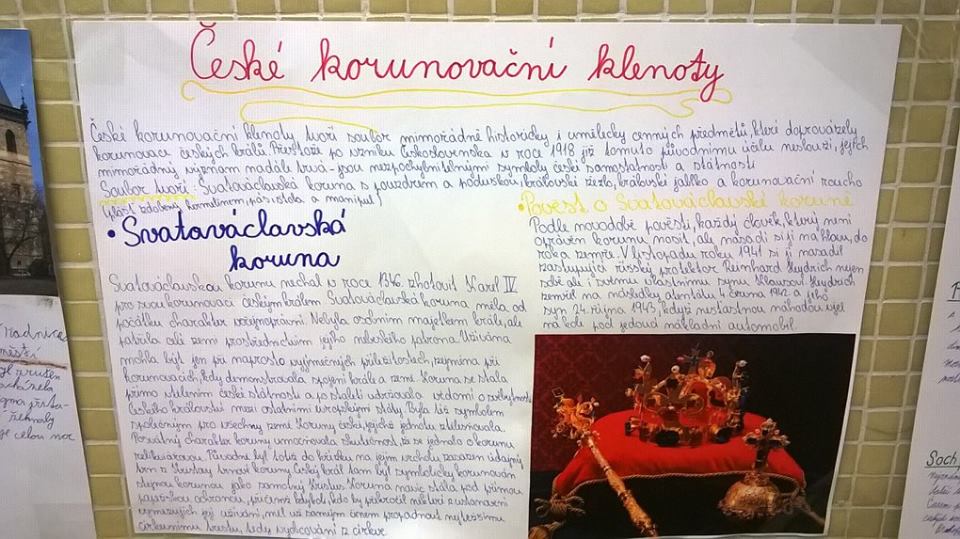 České korunovační klenoty
České korunovační klenoty tvoří soubor mimořádně historicky i umělecky cenných předmětů, které doprovázely
korunovaci českých králů. Přestože po vzniku Československa v roce 1918 již tomuto původnímu účelu neslouží, jejich
mimořádný význam nadále trvá - jsou nezpochybitelnými symboly české samostatnosti a státnosti
Soubor tvoří: Svatováclavská koruna s pouzdrem a poduškou, královské žezlo, královské jablko a korunovační roucho
(plášť zdobený hermelínem, pás, štola a manipul)
• Svatováclavská
koruna
Svatováclavskou korunu nechal v roce 1346 zhotovit Karel IV.
pro svou korunovaci českým králem. Svatováclavská koruna měla od
počátku charakter veřejnoprávní. Nebyla osobním majetkem krále, ale
patřila celé zemi prostřednictvím jejího nebeského patrona. Užívána
mohla být jen při naprosto vyjímečných příležitostech, zejména při
korunovacích, kdy demonstrovala spojení krále a země. Koruna se stala
přímo vtělením české státnosti a po staletí udržovala vědomí o svébytnosti
Českého království mezi ostatními evropskými státy. Byla též symbolem
společným pro všechny země Koruny české, jejichž jednotu ztělesňovala.
Posvátný charakter koruny umocňovala skutečnost, že se jednalo o korunu
relikviářovou. Původně byl totiž do křížku na jejím vrcholu zasazen údajný
trn z Kristovy trnové koruny. Český král tam byl symbolicky korunován
stejnou korunou jako samotný Kristus. Koruna navíc stála pod přímou
papežskou ochranou, přičemž kdykoli, kdo by překročil některá z ustanovení
vymezujících její užívání, měl už samým činem propadnout nejtěžšímu
církevnímu trestu, tedy vyobcování z církve
• Pověst o Svatováclavské koruně
Podle novodobé pověsti, každý člověk, který není
oprávněn korunu nosit, ale nasadí si ji na hlavu, do
roka zemře. V listopadu roku 1941 si ji nasadil
zastupující říšský protektor Reinhard Heydrich nejen
sobě ale i svému vlastnímu synu Klausovi. Heydrich
zemřel na následky atentátu 4. června 1942 a jeho
syn 24. října 1943, když nešťastnou náhodou vjel
na kole pod jedoucí nákladní automobil.
radnice
Soch